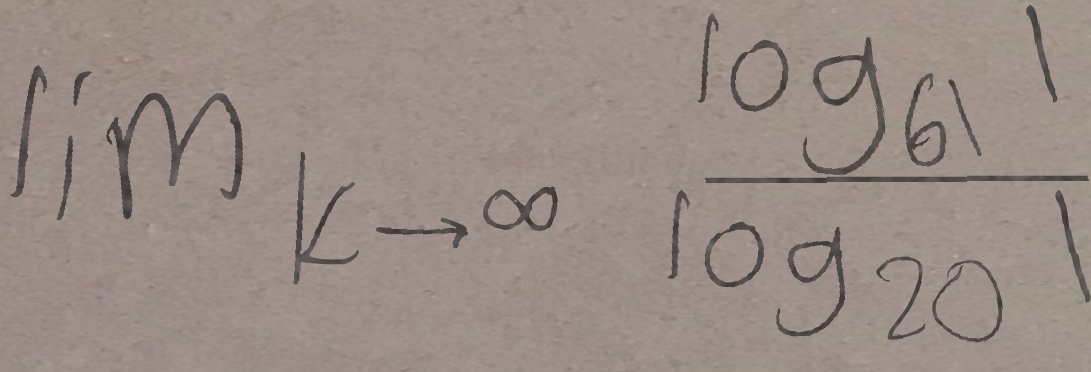 \lim_{k \to \infty} \frac{\log_{61} 1}{\log_{20} 1}